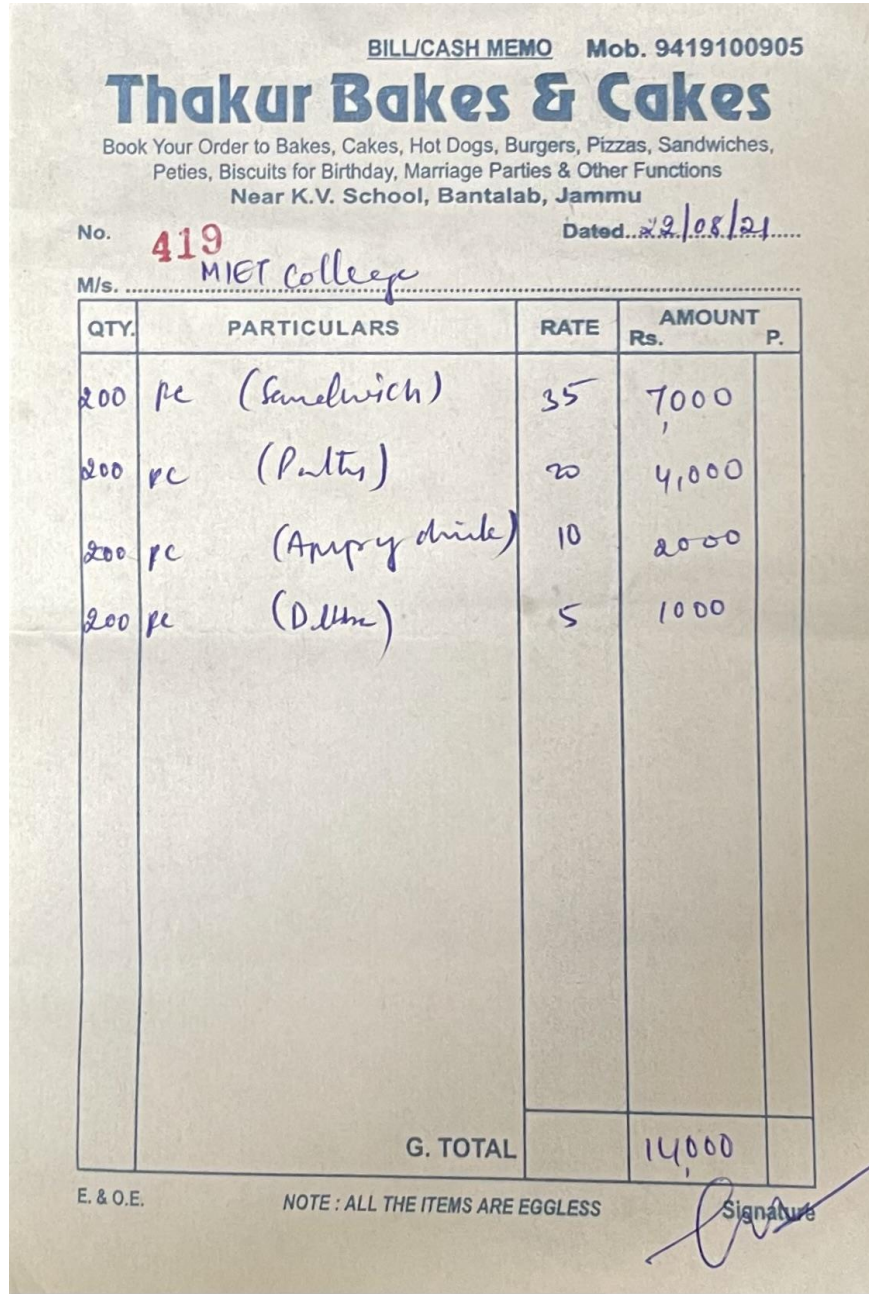 BILL/CASH MEMO Mob. 9419100905
Thakur Bakes & Cakes
Book Your Order to Bakes, Cakes, Hot Dogs, Burgers, Pizzas, Sandwiches,
Peties, Biscuits for Birthday, Marriage Parties & Other Functions
Near K.V. School, Bantalab, Jammu
No. 419 Dated..22/08/21.....
M/s. MIET College
QTY. PARTICULARS RATE AMOUNT
Rs. P.
200 pc (Sandwich) 35 7,000
200 pc 20 4,000
200 pc 10 2000
200 pc 5 1000
G. TOTAL 14,000
E. & O.E. NOTE : ALL THE ITEMS ARE EGGLESS Signature